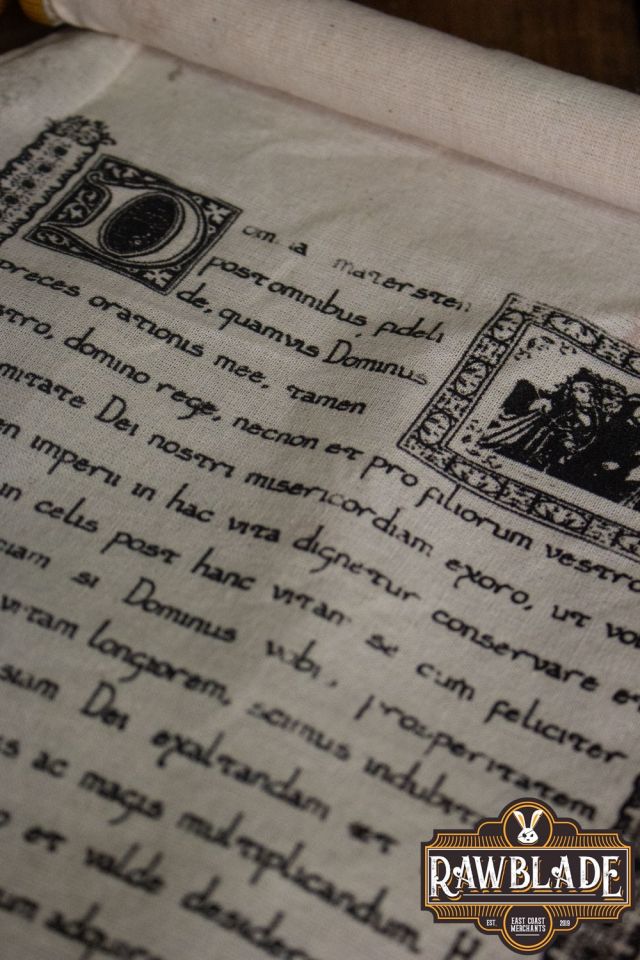 D
materster
post omnibus fideli
de, quamvis Dominus
preces orationis mee, tamen
stro, domino rege, necnon et pro filiorum vestro
mitate Dei nostri misericordiam exoro, ut vo
en imperii in hac vita dignetur conservare et
in celis post hanc vitam se cum feliciter
ciam si Dominus vobi, prosperitatem
vitam longiorem, scimus indubit
siam Dei exaltandam et
s ac magis multiplicandum. H
o et valde desider
um adqu
RAWBLADE
EST. EAST COAST MERCHANTS 2019